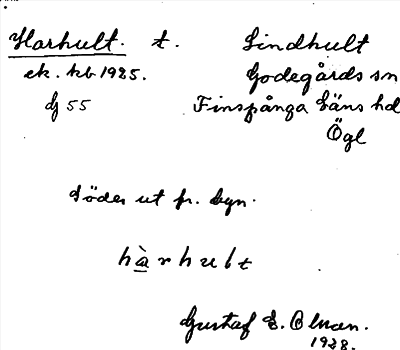 Harhult. t. Lindhult
ek. kb 1925. Godegårds sn
dj 55 Finspånga Läns hd
Ögl
Söder ut fr. byn.
hàrhult
Gustaf E. Olman.
1928.